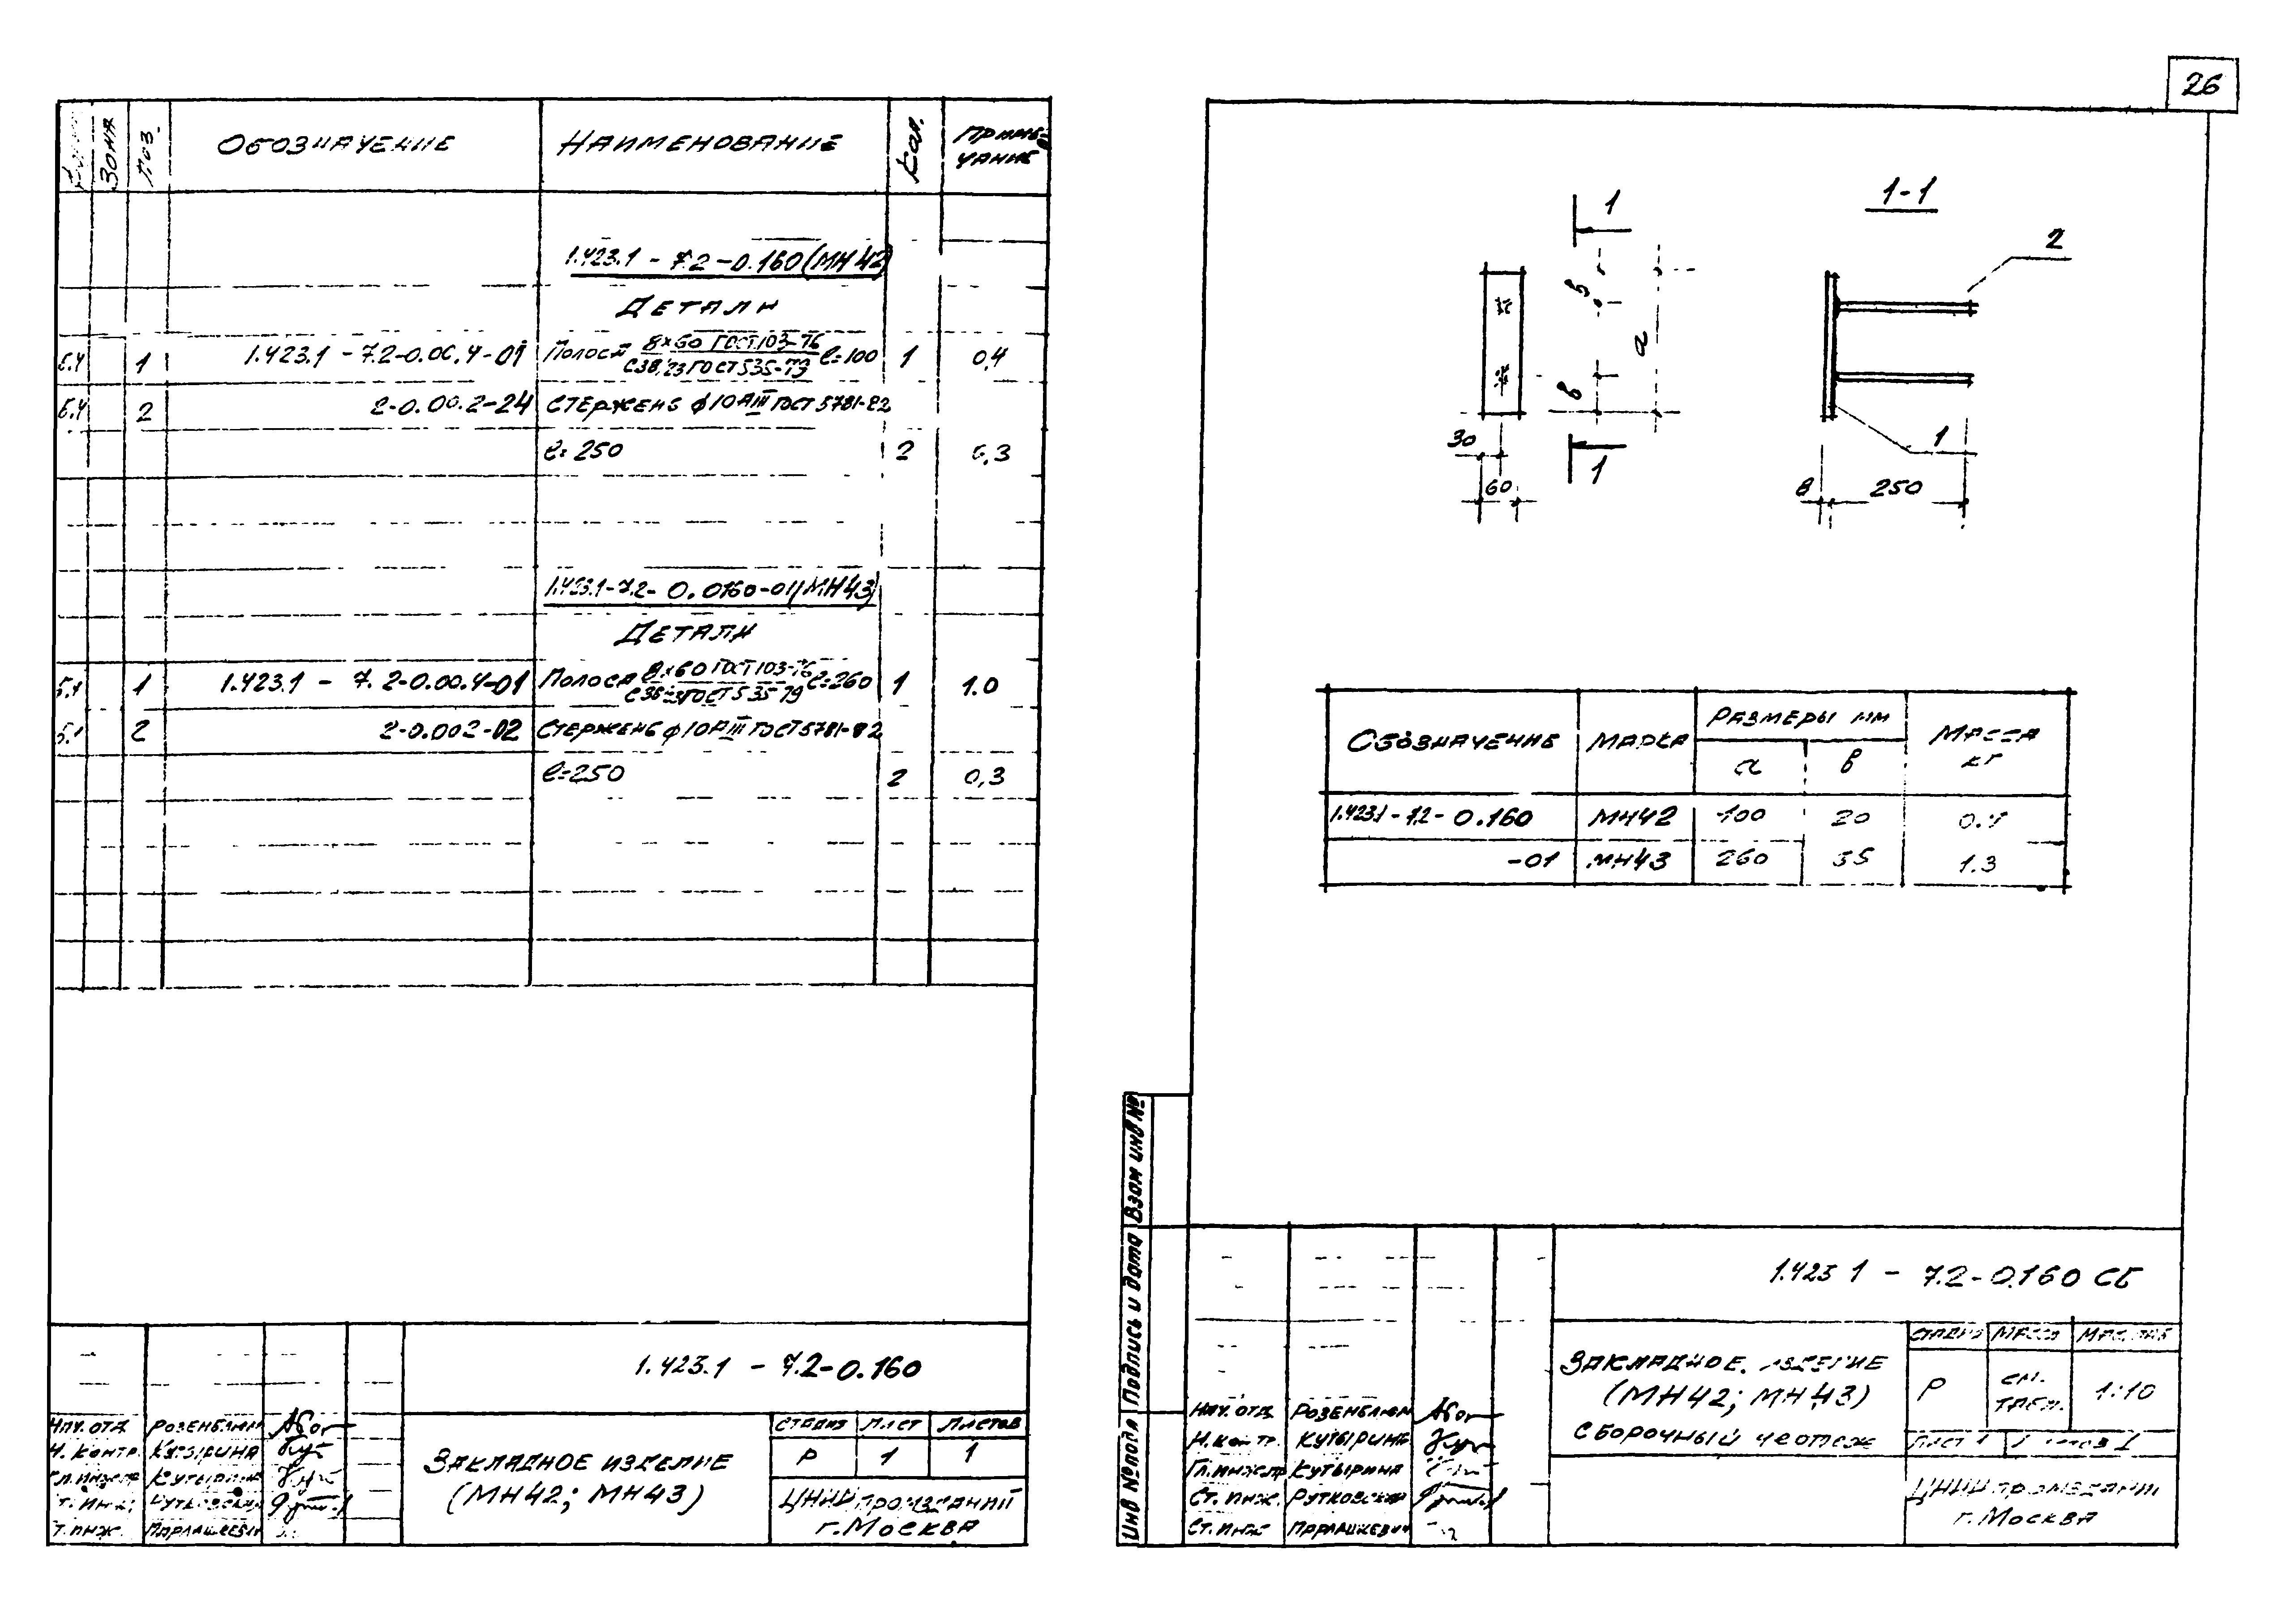 26
Зона Поз. Обозначение Наименование Кол. Примечание
1.423.1 - 7.2-0.160 (МН42)
Детали
Б.Ч 1 1.423.1 - 7.2-0.00.4-01 Полоса 8×60 ГОСТ 103-76 ℓ=100 1 0,4
С38/23 ГОСТ 535-79
Б.Ч 2 2-0.00.2-24 Стержень ф10АIII ГОСТ 5781-82
ℓ=250 2 0,3
1.423.1-7.2-0.0160-01 (МН43)
Детали
Б.Ч 1 1.423.1 - 7.2-0.00.4-01 Полоса 8×60 ГОСТ 103-76 ℓ=260 1 1.0
С38/23 ГОСТ 535-79
2 2-0.002-02 Стержень ф10АIII ГОСТ 5781-82
ℓ=250 2 0,3
1.423.1 - 7.2-0.160
Нач. отд. Розенблюм
Н. контр. Кутырина
Гл. инж. пр. Кутырина
Ст. инж. Рутковский
Ст. инж. Парлашкевич
Закладное изделие
(МН42; МН43)
Стадия Лист Листов
Р 1 1
ЦНИИпромзданий
г. Москва
1 1-1
2
в
а
в
30 1 1
60 8 250
Обозначение Марка Размеры мм Масса кг
а в
1.423.1-7.2-0.160 МН42 100 20 0.7
-01 МН43 260 55 1.3
Инв № подл Подпись и дата Взам инв №
1.423 1 - 7.2-0.160 СБ
Нач. отд. Розенблюм
Н. контр. Кутырина
Гл. инж. пр Кутырина
Ст. инж. Рутковский
Ст. инж Парлашкевич
Закладное изделие
(МН42; МН43)
Сборочный чертеж
Стадия Масса Масштаб
Р см. табл. 1:10
Лист 1 Листов 1
ЦНИИпромзданий
г. Москва